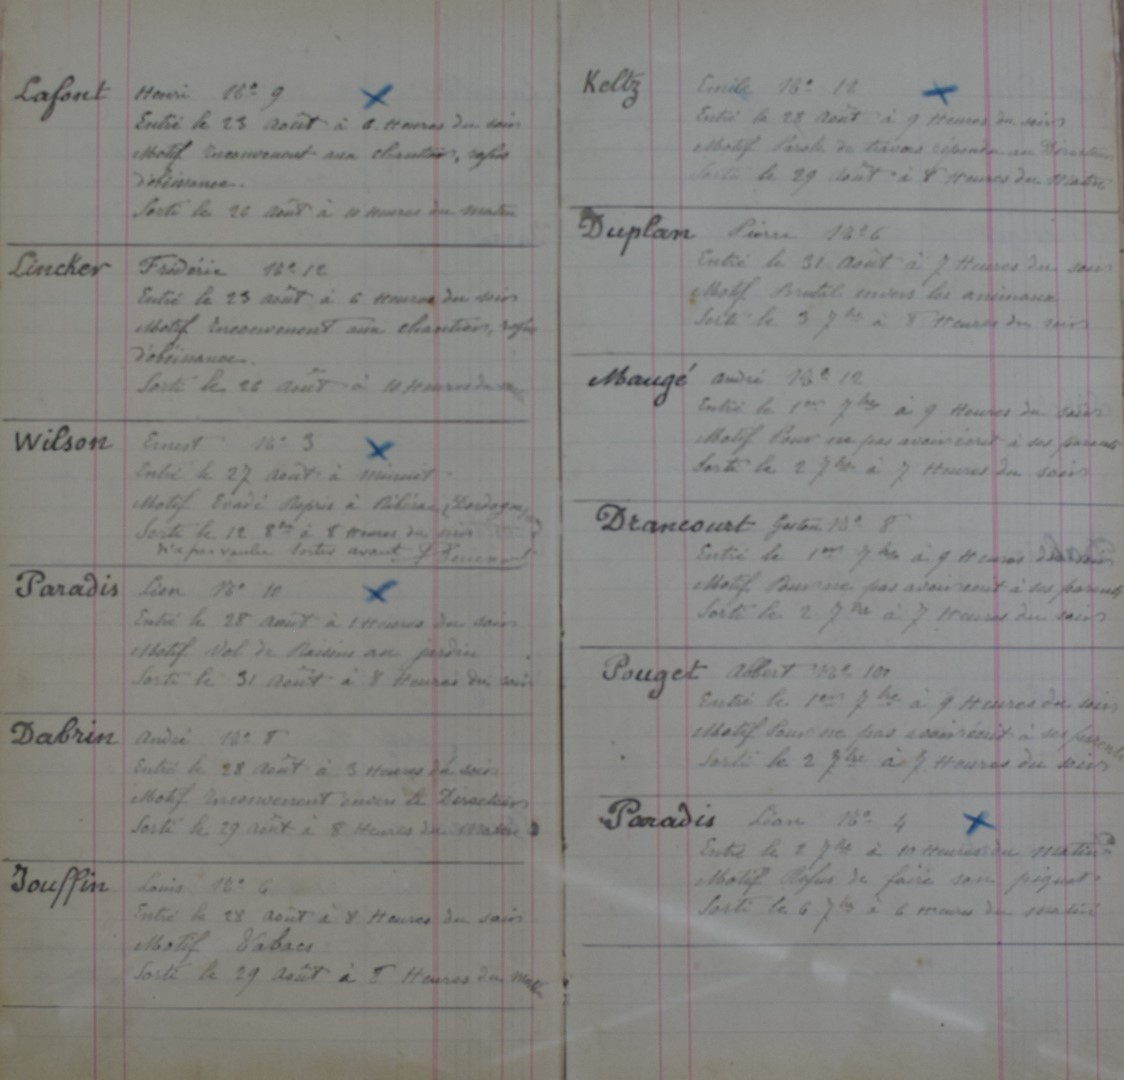 Lafont Henri No 9
Entré le 23 août à 6 Heures du soir
Motif Inconvenant aux chantiers, refus
d'obéissance.
Sorti le 26 août à 10 Heures du matin
Lincker Frédéric No 12
Entré le 23 août à 6 Heures du soir
Motif Inconvenant aux chantiers, refus
d'obéissance.
Sorti le 26 août à 10 Heures du
Wilson Ernest No 3
Entré le 27 août à minuit
Motif Evadé Repris à Ribérac (Dordogne)
Sorti le 12 8bre à 8 Heures du soir
n'a pas voulu sortir avant
Paradis Léon No 10
Entré le 28 août à 1 Heures du soir
Motif Vol de Raisins au jardin
Sorti le 31 août à 8 Heures du soir
Dabrin André No 8
Entré le 28 août à 3 Heures du soir
Motif Inconvenant envers le Directeur
Sorti le 29 août à 8 Heures du matin
Jouffin Louis No 6
Entré le 28 août à 8 Heures du soir
Motif Tabacs
Sorti le 29 août à 8 Heures du
Keltz Emile No 12
Entré le 28 août à 9 Heures du soir
Motif Parole de travers répondu au Directeur
Sorti le 29 août à 8 Heures du matin
Duplan Pierre No 6
Entré le 31 août à 7 Heures du soir
Motif Brutal envers les animaux
Sorti le 3 7bre à 8 Heures du soir
Maugé André No 12
Entré le 1er 7bre à 9 Heures du soir
Motif Pour ne pas avoir écrit à ses parents
Sorti le 2 7bre à 7 Heures du soir
Drancourt Gaston No 8
Entré le 1er 7bre à 9 Heures du soir
Motif Pour ne pas avoir écrit à ses parents
Sorti le 2 7bre à 7 Heures du soir
Pouget Albert No 100
Entré le 1er 7bre à 9 Heures du soir
Motif Pour ne pas avoir écrit à ses parents
Sorti le 2 7bre à 7 Heures du soir
Paradis Léon No 4
Entré le 2 7bre à 10 Heures du matin
Motif Refus de faire son piquet
Sorti le 6 7bre à 6 Heures du matin